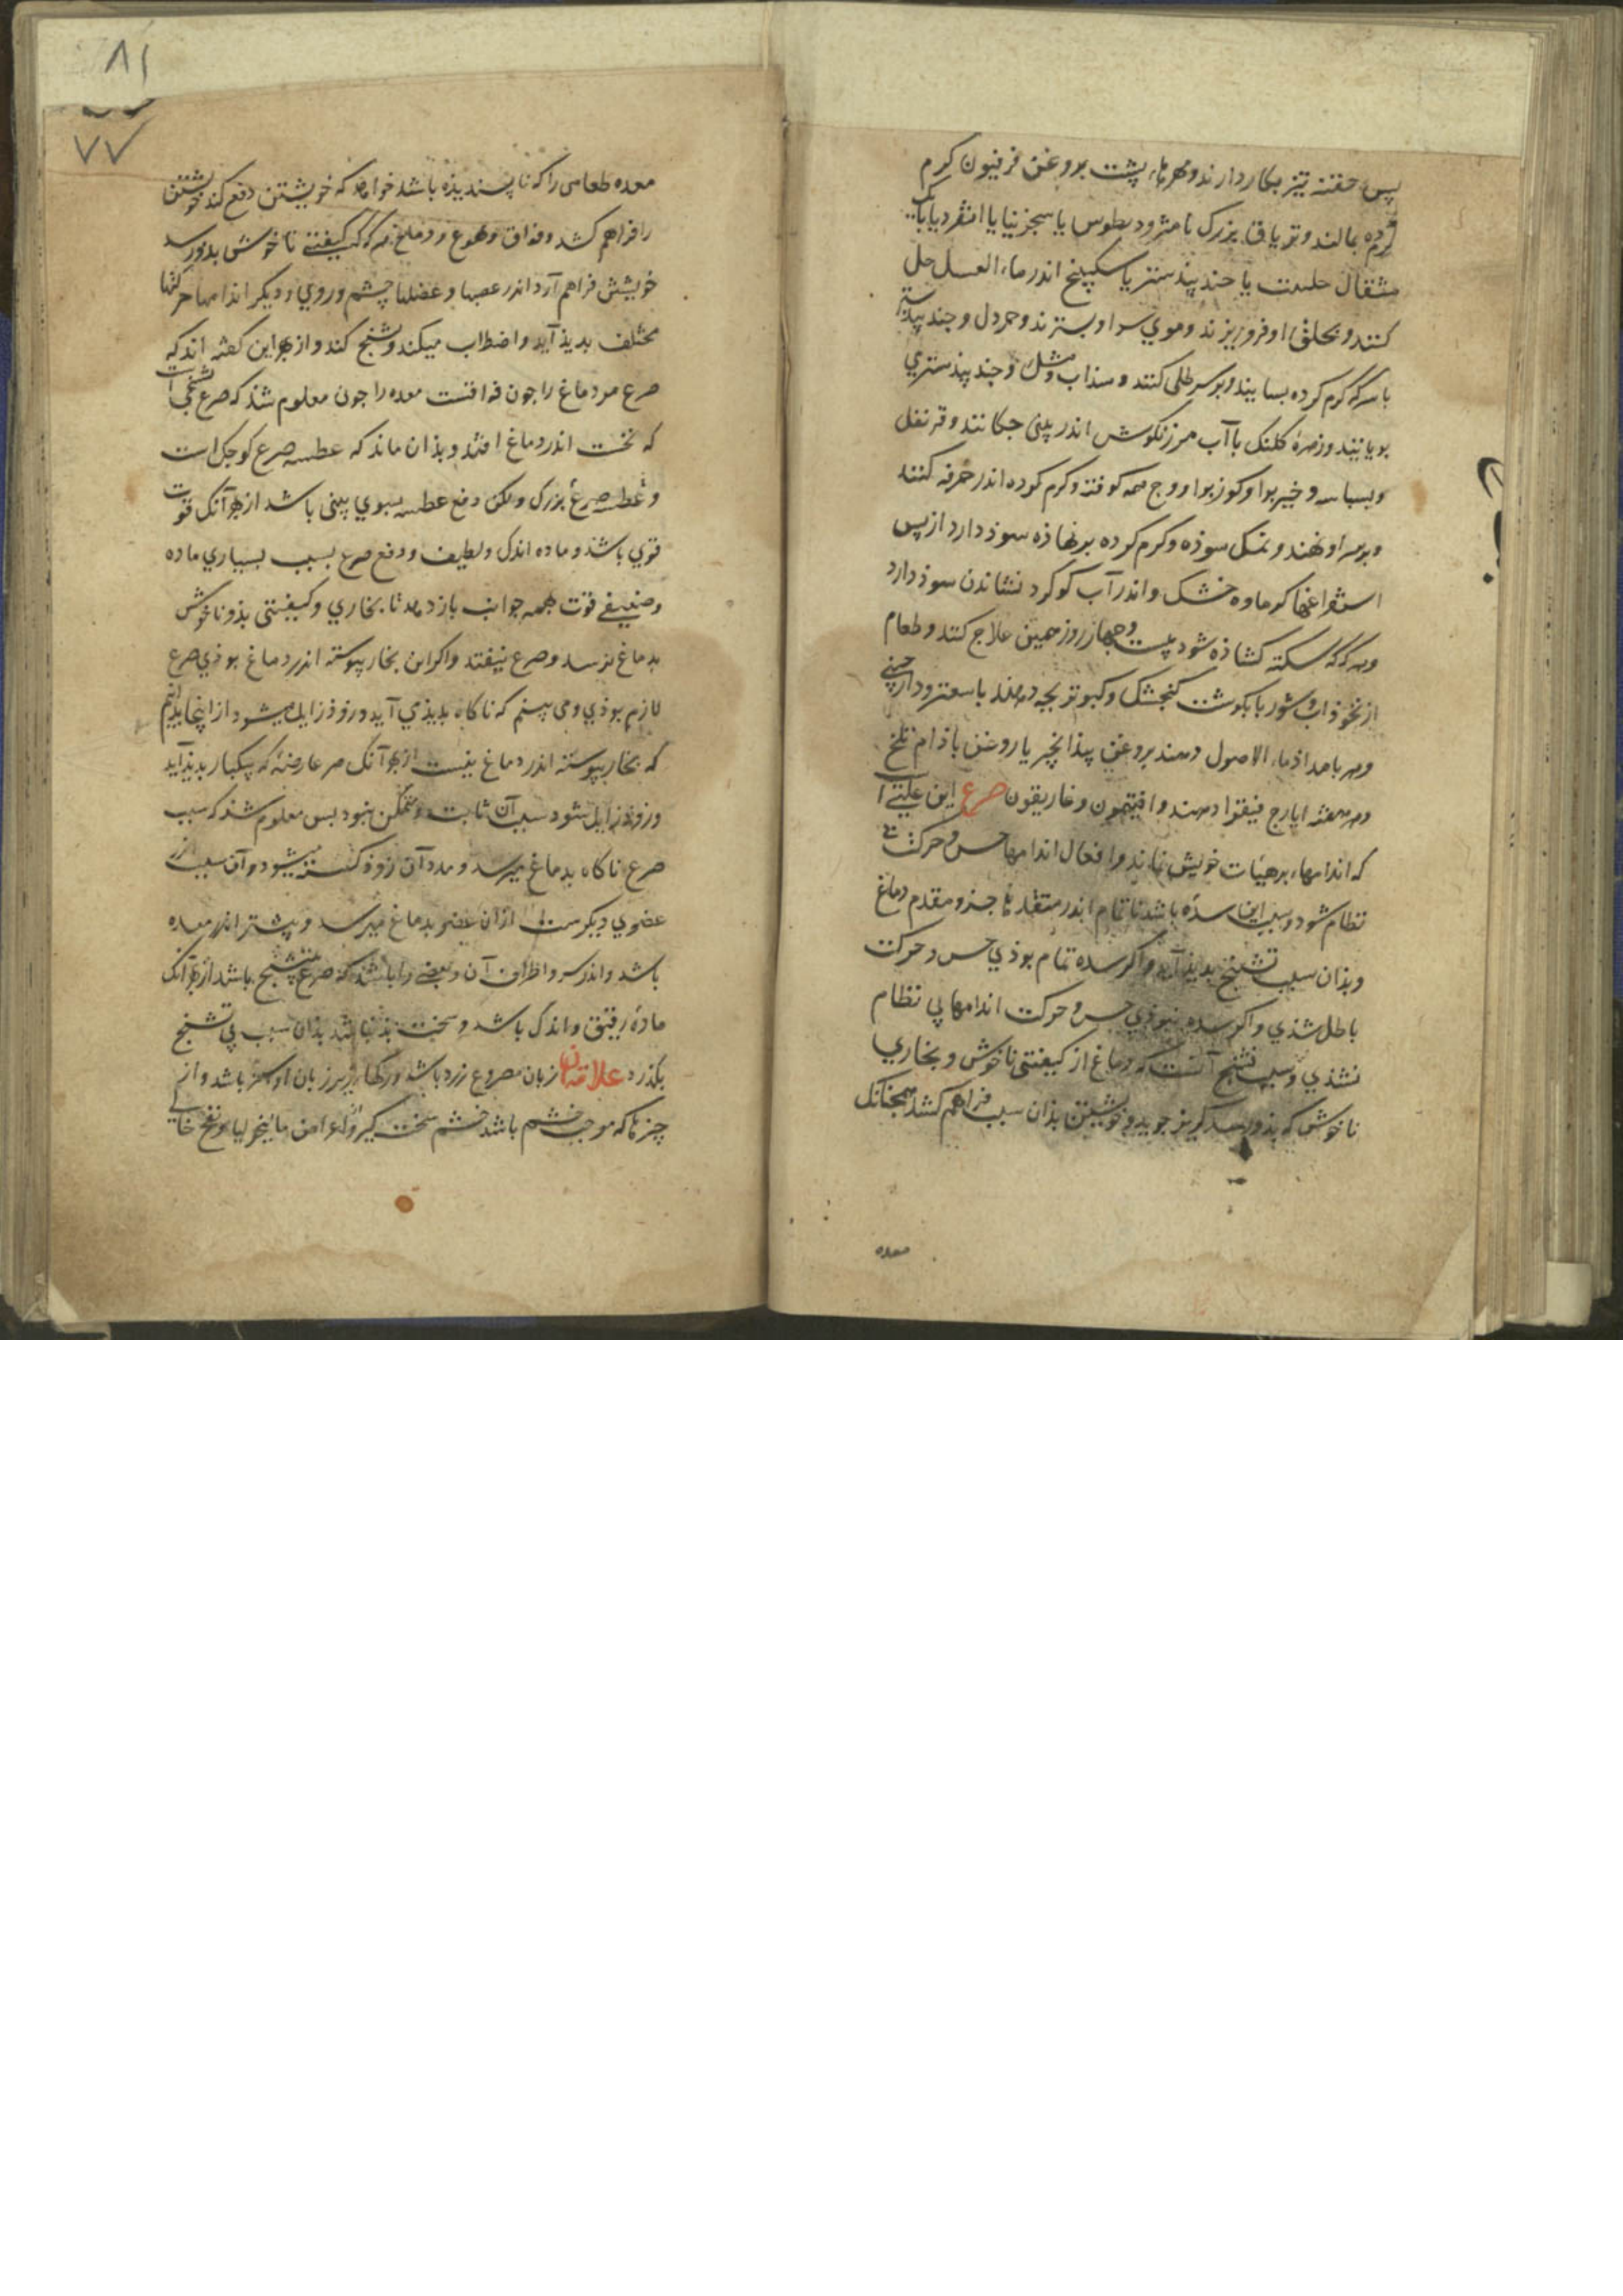 پس حقنه تیز بکار دارند و مهرهاء پشت بروغن فرفیون کرم
کرده بمالند و تریاق بزرک یا مثرودیطوس یا سجزینیا یا انقردیا یا یک
مثقال حلتیت یا جند بیدستر یا سکبینج اندر ماء العسل حل
کنند و بحلق او فرو ریزند و موی سر او بسترند و خردل و جند بیدستر
با سرکه کرم کرده بسایند و بر سر طلی کنند و سذاب و مشک و جند بیذستری
بویانند و زهرۀ کلنک با آب مرزنکوش اندر بینی چکانند و قرنفل
و بسباسه و خیربوا و کوزبوا و وج همه کوفته و کرم کرده اندر خرقه کنند
و بر سر او نهند و نمک سوذه و کرم کرده بر نهاذه سوذ دارد از پس
استفراغها کرماوه خشک و اندر آب کوکرد نشاندن سوذ دارد
و هرکه که سکته کشاذه شود بیست و جهار روز همین علاج کنند و طعام
از نخوذاب و شوربا بکوشت کنجشک و کبوتر بچه دهند با سعتر و دارچینی
و هر بامداذ ماء الاصول دهند بروغن بیذانجیر یا روغن باذام تلخ
و هر هفته ایارج فیقرا دهند و افتیمون و غاریقون صرع این علتی‌است
که اندامهاء بر هیئات خویش نماند و افعال اندامها حس و حرکت بی
نظام شود و سبب این سدّه باشد ناتمام اندر منفذهاء جزو مقدم دماغ
و بذان سبب تشنج بدید آید و اکر سده تمام بوذی حس و حرکت
باطل شذی و اکر سده نبوذی حس و حرکت اندامها بی نظام
نشذی و سبب تشنج آنست که دماغ از کیفیتی ناخوش و بخاری
ناخوش که بذو رسد کریز جوید و خویشتن بذان سبب فراهم کشد همجنانک
معده
۸۱
۷۷
معده طعامی را که ناپسندیذه باشد خواهد که خویشتن دفع کند خویشتن
را فراهم کشد و فواق و تهوع و دماغ هرکه که کیفیتی ناخوش بدو رسد
خویشتن فراهم آرد اندر عصبها و عضلها چشم و روی و دیکر اندامها حرکتها
مختلف بدیذ آید و اضطراب میکند و تشنج کند و از بهر این کفته اند که
صرع مر دماغ را جون فواقست معده را جون معلوم شذ که صرع تشنجی است
که نخست اندر دماغ افتذ و بذان ماند که عطسه صرع کوجک است
و عطسه صرع بزرک ولکن دفع عطسه بسوی بینی باشد از بهر آنک قوت
قوی باشذ و ماده اندک و لطیف و دفع صرع بسبب بسیاری ماده
و ضعیفی قوت بهمه جوانب باز دهد تا بخاری و کیفیتی بذو ناخوش
بدماغ نرسد و صرع نیفتد و اکر این بخار پیوسته اندر دماغ بوذی صرع
لازم بوذی و می بینم که ناکاه بدیذی آید و زوذ زایل میشود از اینجا بدانیم
که بخار پیوسته اندر دماغ نیست از بهر آنک هر عارضۀ که بیکبار بدیذ آید
و زوذ زایل شود سبب آن ثابت و متمکن نبود بس معلوم شذ که سبب
صرع ناکاه بدماغ میرسد و مدد آن زوذ کسسته میشود و آن سبب از
عضوی دیکرست از آن عضو بدماغ میرسد و بیشتر اندر معده
باشد و اندر سر و اطراف آن و بعضی را باشد که صرع بی تشنج باشد از بهر آنک
مادۀ رقیق و اندک باشد و سخت بذ نباشد بذان سبب بی تشنج
بکذرد علامتهاء آن زبان مصروع زرد باشد و رکهاء زیر زبان او سبز باشد و از
چیزها که موجب خشم باشد خشم سخت کیرد و اعراض مالیخولیا و نفخ خالی